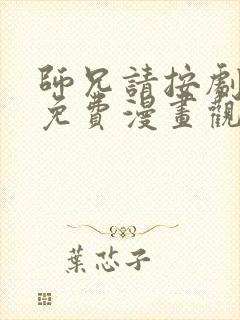 師兄請按劇
免費漫畫觀
葉芯子